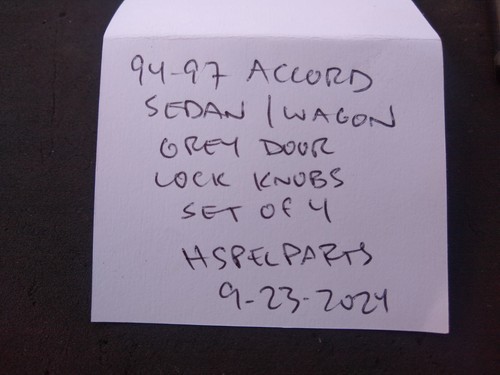 94-97 ACCORD
SEDAN / WAGON
GREY DOOR
LOCK KNOBS
SET OF 4
HSPECPARTS
9-23-2024